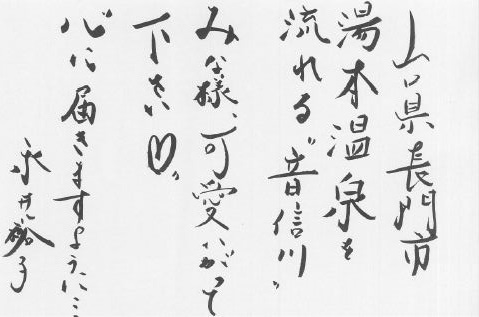 山口県長門市
湯本温泉を
流れる"音信川"
みな様、可愛いがって
下さい♡。
心に届きますように…
永井裕子